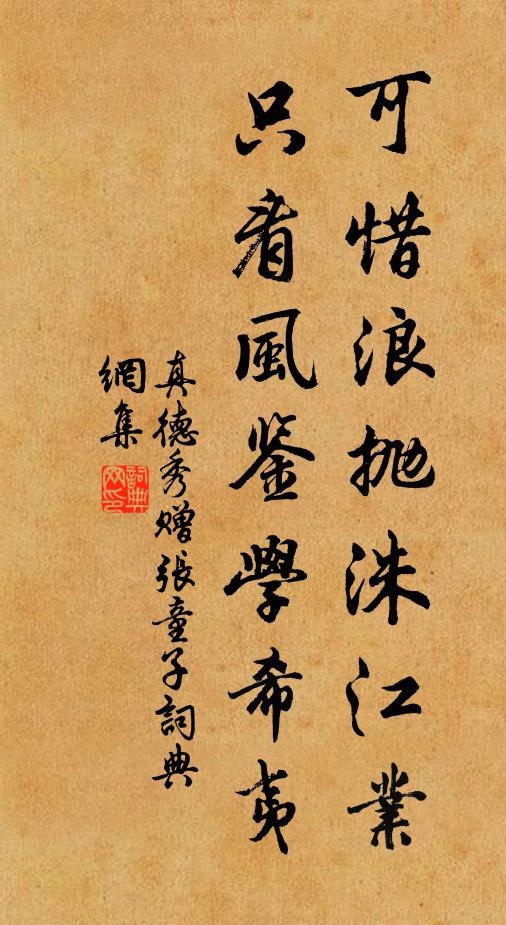 可惜浪抛洙江業
只看風鉴學希夷
真德秀贈張童子詞典
網集
詞典網印